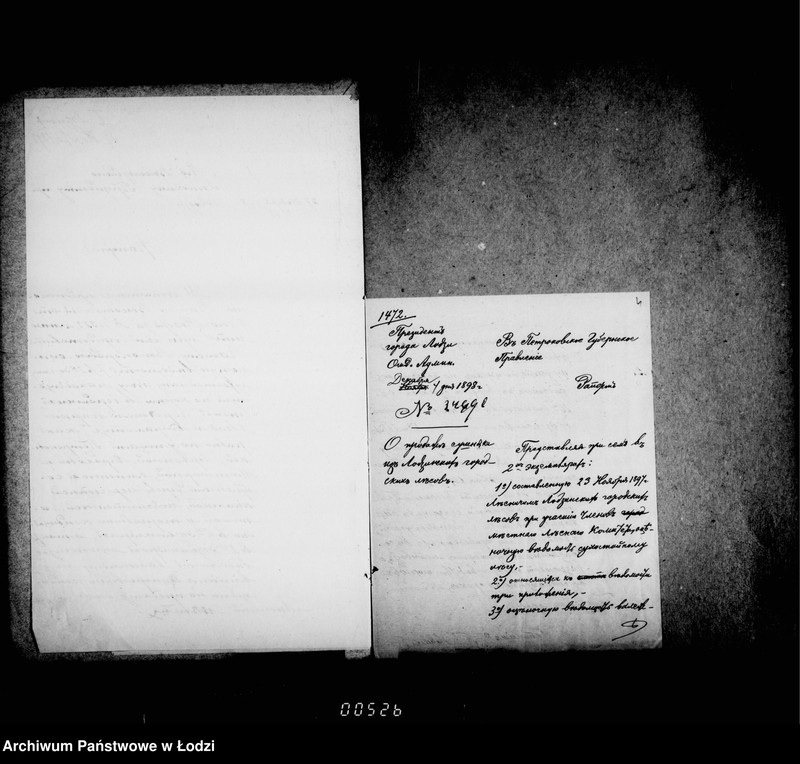 4
1472.
Президентъ
города Лодзи
Отд. Админ.
Декабря
4 дня 1898 г.
№ 2499
Въ Петроковское Губернское
Правленіе
Рапортъ
О продажѣ
изъ Лодзинскихъ город-
скихъ лѣсовъ.
Представляя при семъ въ
2хъ экземплярахъ:
1) составленную 23 Ноября 1897 г.
Лѣсничимъ Лодзинскихъ городскихъ
лѣсовъ при участіи Членовъ
мѣстнаго Лѣснаго оцѣ-
ночную вѣдомость сухостойному
лѣсу,-
2) относящіяся къ вѣдомости
три приложенія,-
3) оцѣночную вѣдомость
00526
Archiwum Państwowe w Łodzi